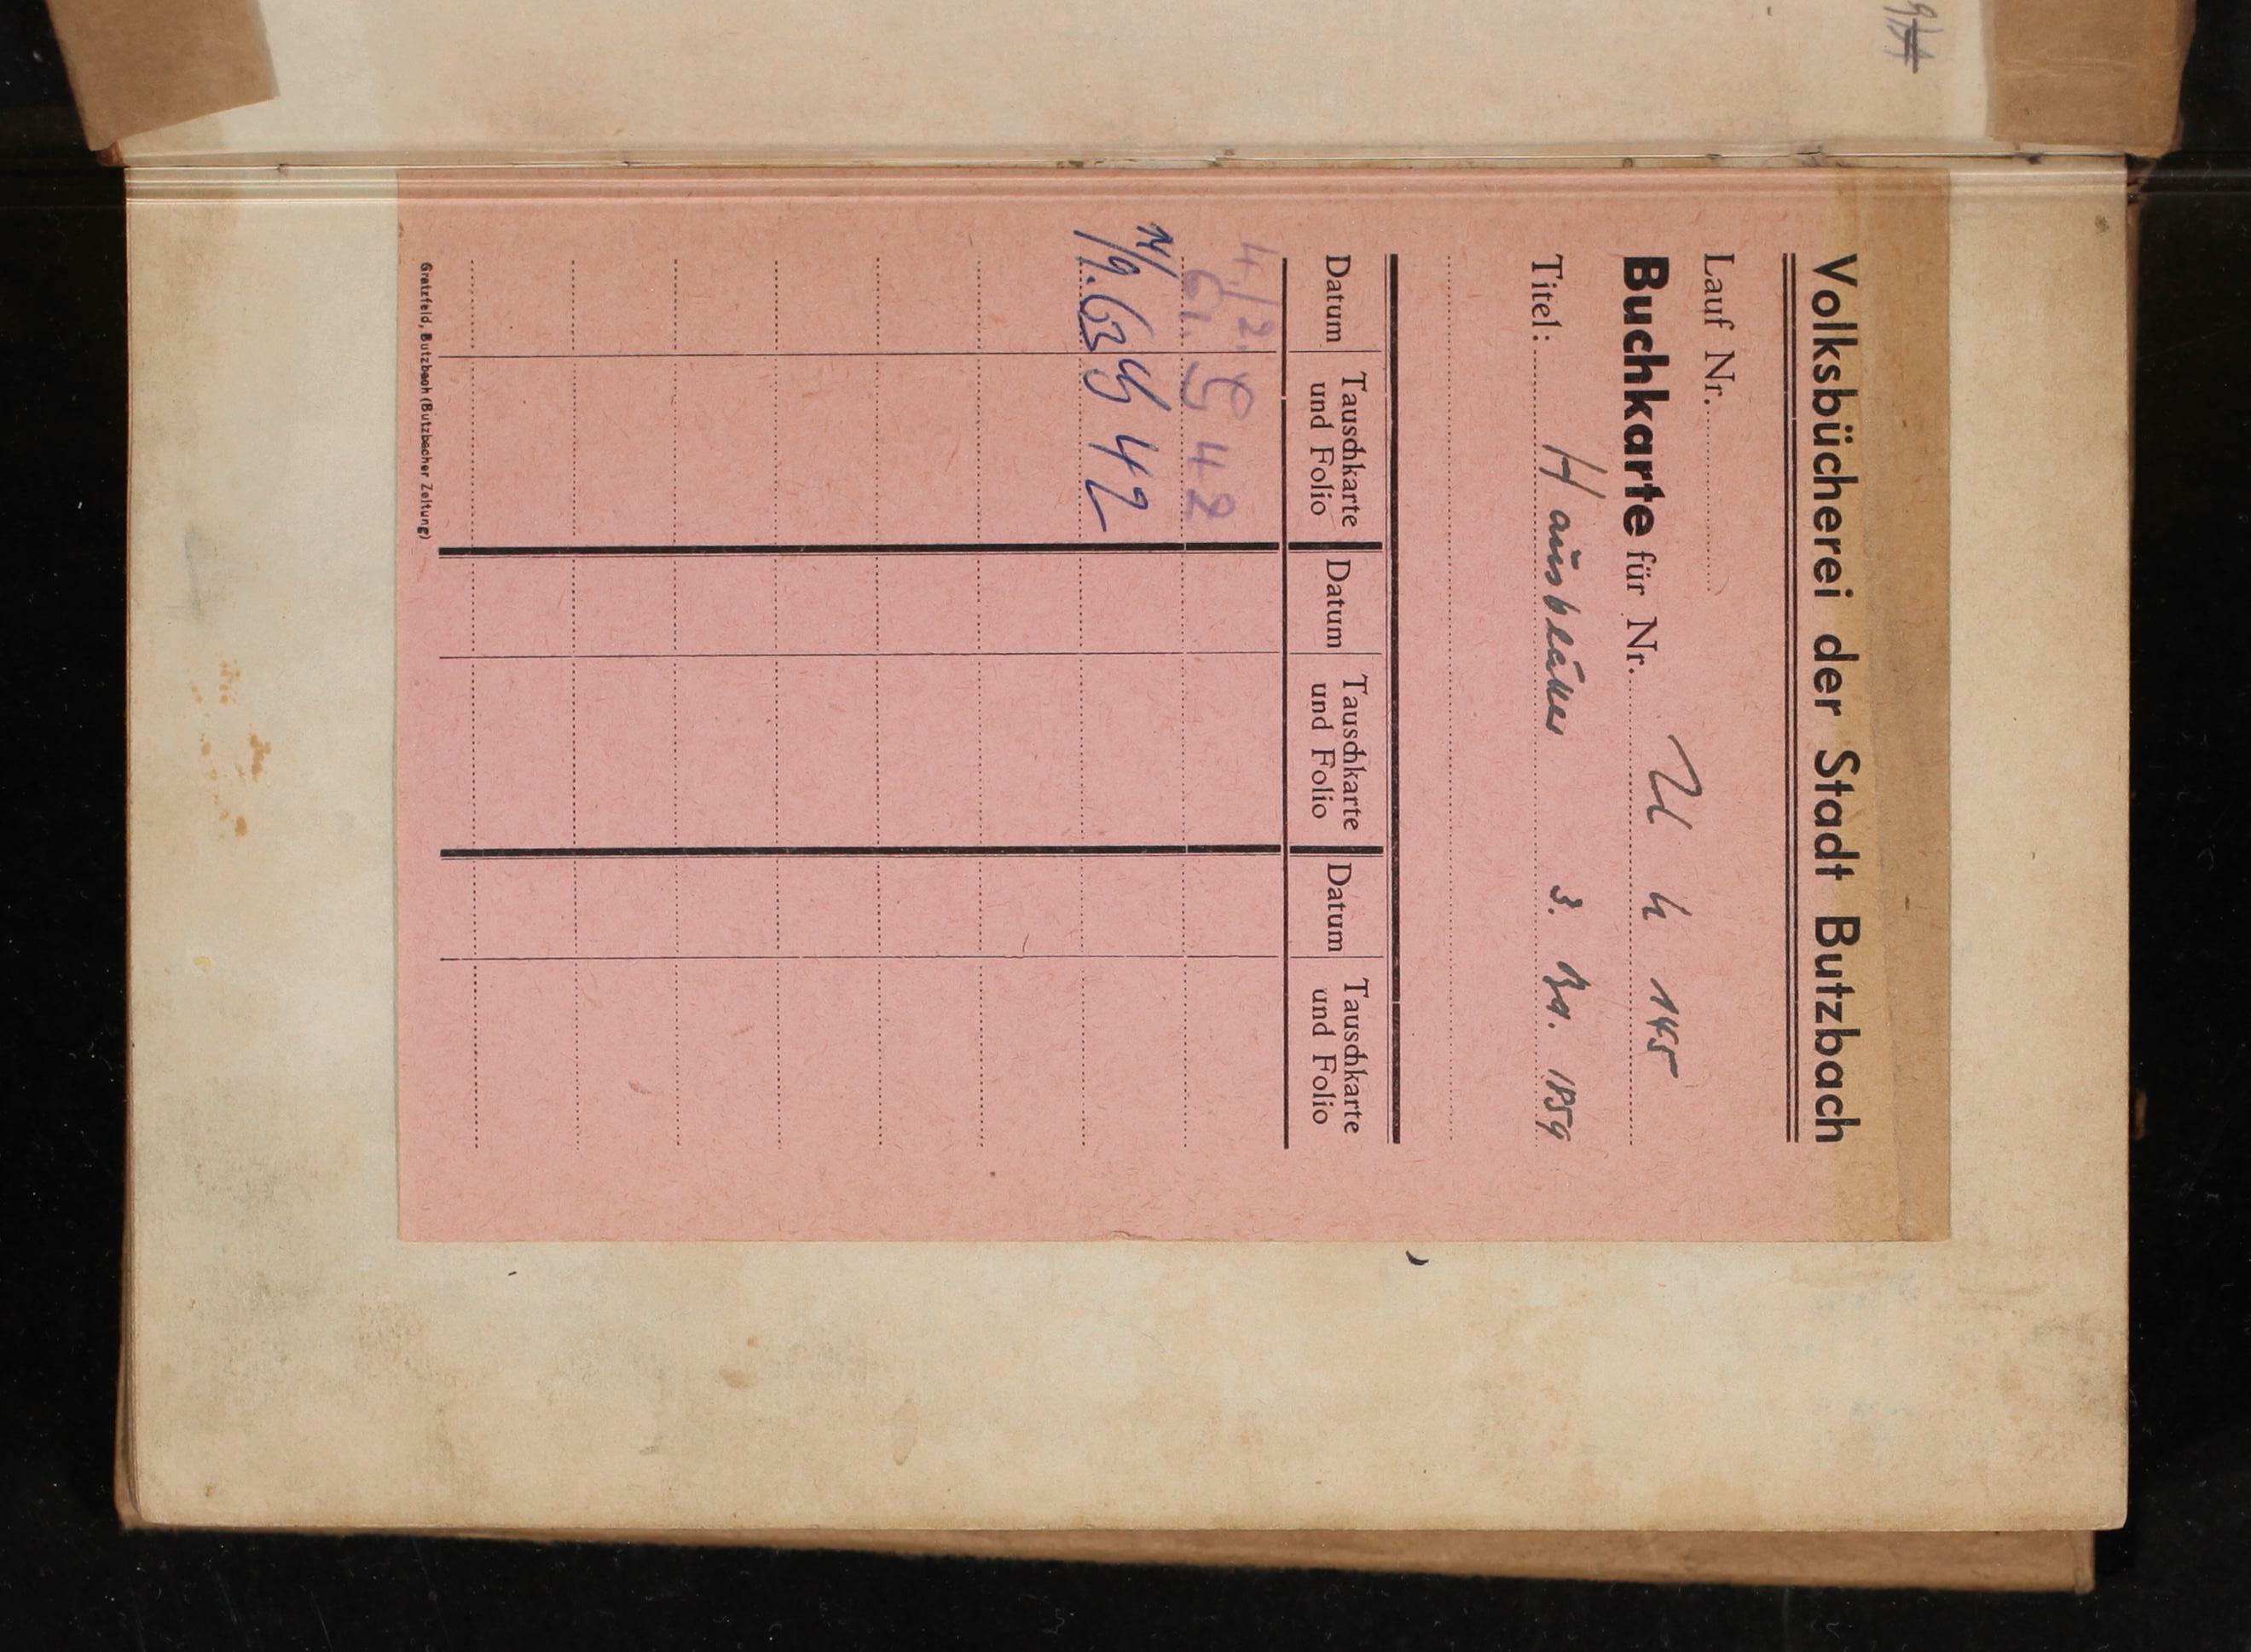 Volksbücherei der Stadt Butzbach
Lauf Nr.
Buchkarte für Nr. U h 145
Titel: Hausblätter 3. Bd. 1859
Datum Tauschkarte und Folio Datum Tauschkarte und Folio Datum Tauschkarte und Folio
4./2. 61. 42
14/9. 63 42
Gratzfeld, Butzbach (Butzbacher Zeitung)